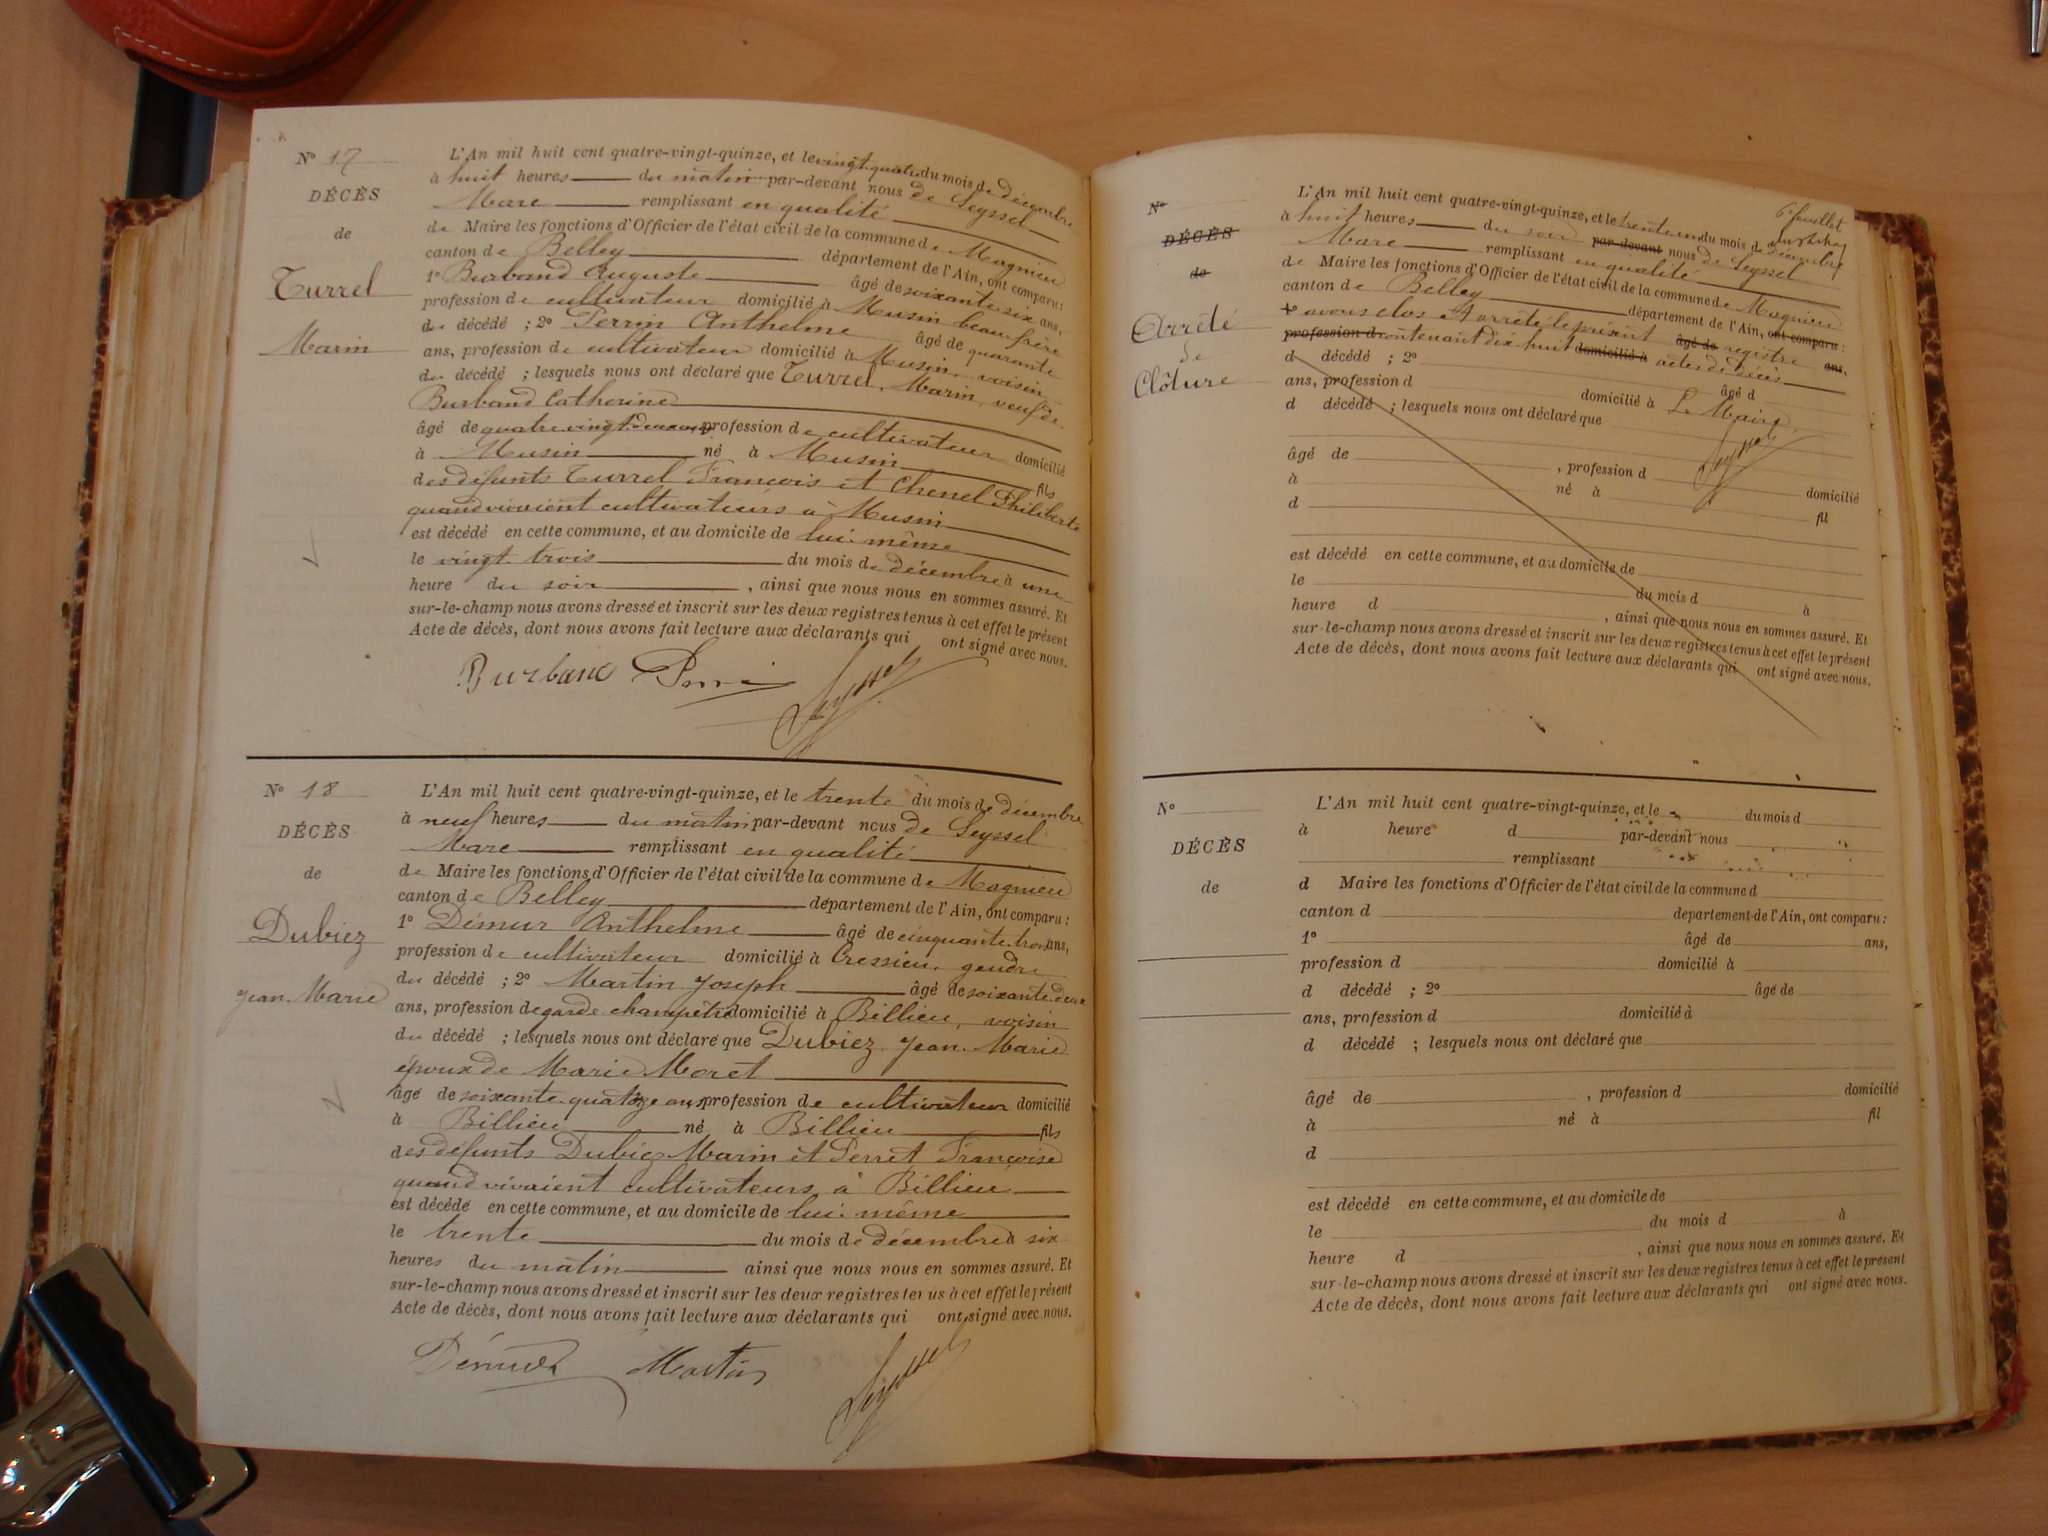 N° 17
DÉCÈS
de
Turrel
Marin
L'An mil huit cent quatre-vingt-quinze, et le vingt quatre du mois de décembre
à huit heures du matin par-devant nous de Seyssel
Marc remplissant en qualité
de Maire les fonctions d'Officier de l'état civil de la commune de Magnieu
canton de Belley département de l'Ain, ont comparu :
1° Burband Auguste âgé de soixante six ans,
profession de cultivateur domicilié à Musin beau frère
du décédé ; 2° Perrin Anthelme âgé de quarante
ans, profession de cultivateur domicilié à Musin, voisin
du décédé ; lesquels nous ont déclaré que Turrel, Marin, veuf de
Burband Catherine
âgé de quatre vingt deux ans profession de cultivateur domicilié
à Musin né à Musin fils
des défunts Turrel François et Chenel Philiberte
quand vivaient cultivateurs à Musin
est décédé en cette commune, et au domicile de lui-même
le vingt trois du mois de décembre à une
heure du soir , ainsi que nous nous en sommes assuré. Et
sur-le-champ nous avons dressé et inscrit sur les deux registres tenus à cet effet le présent
Acte de décès, dont nous avons fait lecture aux déclarants qui ont signé avec nous.
Burband Perrin Seyssel
N° 18
DÉCÈS
de
Dubiez
Jean-Marie
L'An mil huit cent quatre-vingt-quinze, et le trente du mois de décembre
à neuf heures du matin par-devant nous de Seyssel
Marc remplissant en qualité
de Maire les fonctions d'Officier de l'état civil de la commune de Magnieu
canton de Belley département de l'Ain, ont comparu :
1° Démur Anthelme âgé de cinquante-trois ans,
profession de cultivateur domicilié à Cressieu, gendre
du décédé ; 2° Martin Joseph âgé de soixante deux
ans, profession de garde champêtre domicilié à Billieu, voisin
du décédé ; lesquels nous ont déclaré que Dubiez Jean-Marie
époux de Marie Moret
âgé de soixante quatorze ans profession de cultivateur domicilié
à Billieu né à Billieu fils
des défunts Dubiez Marin et Perret Françoise
quand vivaient cultivateurs à Billieu
est décédé en cette commune, et au domicile de lui-même
le trente du mois de décembre à six
heures du matin ainsi que nous nous en sommes assuré. Et
sur-le-champ nous avons dressé et inscrit sur les deux registres tenus à cet effet le présent
Acte de décès, dont nous avons fait lecture aux déclarants qui ont signé avec nous.
Démur Martin Seyssel
6e feuillet
N°
DÉCÈS
de
Arrêté
de
Clôture
L'An mil huit cent quatre-vingt-quinze, et le trente un du mois de décembre
à huit heures du soir par-devant nous de Seyssel
Marc remplissant en qualité
de Maire les fonctions d'Officier de l'état civil de la commune de Magnieu
canton de Belley département de l'Ain, ont comparu :
1° avons clos et arrêté le présent âgé de registre ans,
profession d contenant dix-huit domicilié à actes de décès
d décédé ; 2° âgé d
ans, profession d domicilié à Le Maire,
d décédé ; lesquels nous ont déclaré que
Seyssel
âgé de , profession d domicilié
à né à fil
d
est décédé en cette commune, et au domicile de
le du mois d à
heure d , ainsi que nous nous en sommes assuré. Et
sur-le-champ nous avons dressé et inscrit sur les deux registres tenus à cet effet le présent
Acte de décès, dont nous avons fait lecture aux déclarants qui ont signé avec nous.
N°
DÉCÈS
de
L'An mil huit cent quatre-vingt-quinze, et le du mois d
à heure d par-devant nous
remplissant
d Maire les fonctions d'Officier de l'état civil de la commune d
canton d département de l'Ain, ont comparu :
1° âgé de ans,
profession d domicilié à
d décédé ; 2° âgé de
ans, profession d domicilié à
d décédé ; lesquels nous ont déclaré que
âgé de , profession d domicilié
à né à fil
d
est décédé en cette commune, et au domicile de
le du mois d à
heure d , ainsi que nous nous en sommes assuré. Et
sur-le-champ nous avons dressé et inscrit sur les deux registres tenus à cet effet le présent
Acte de décès, dont nous avons fait lecture aux déclarants qui ont signé avec nous.